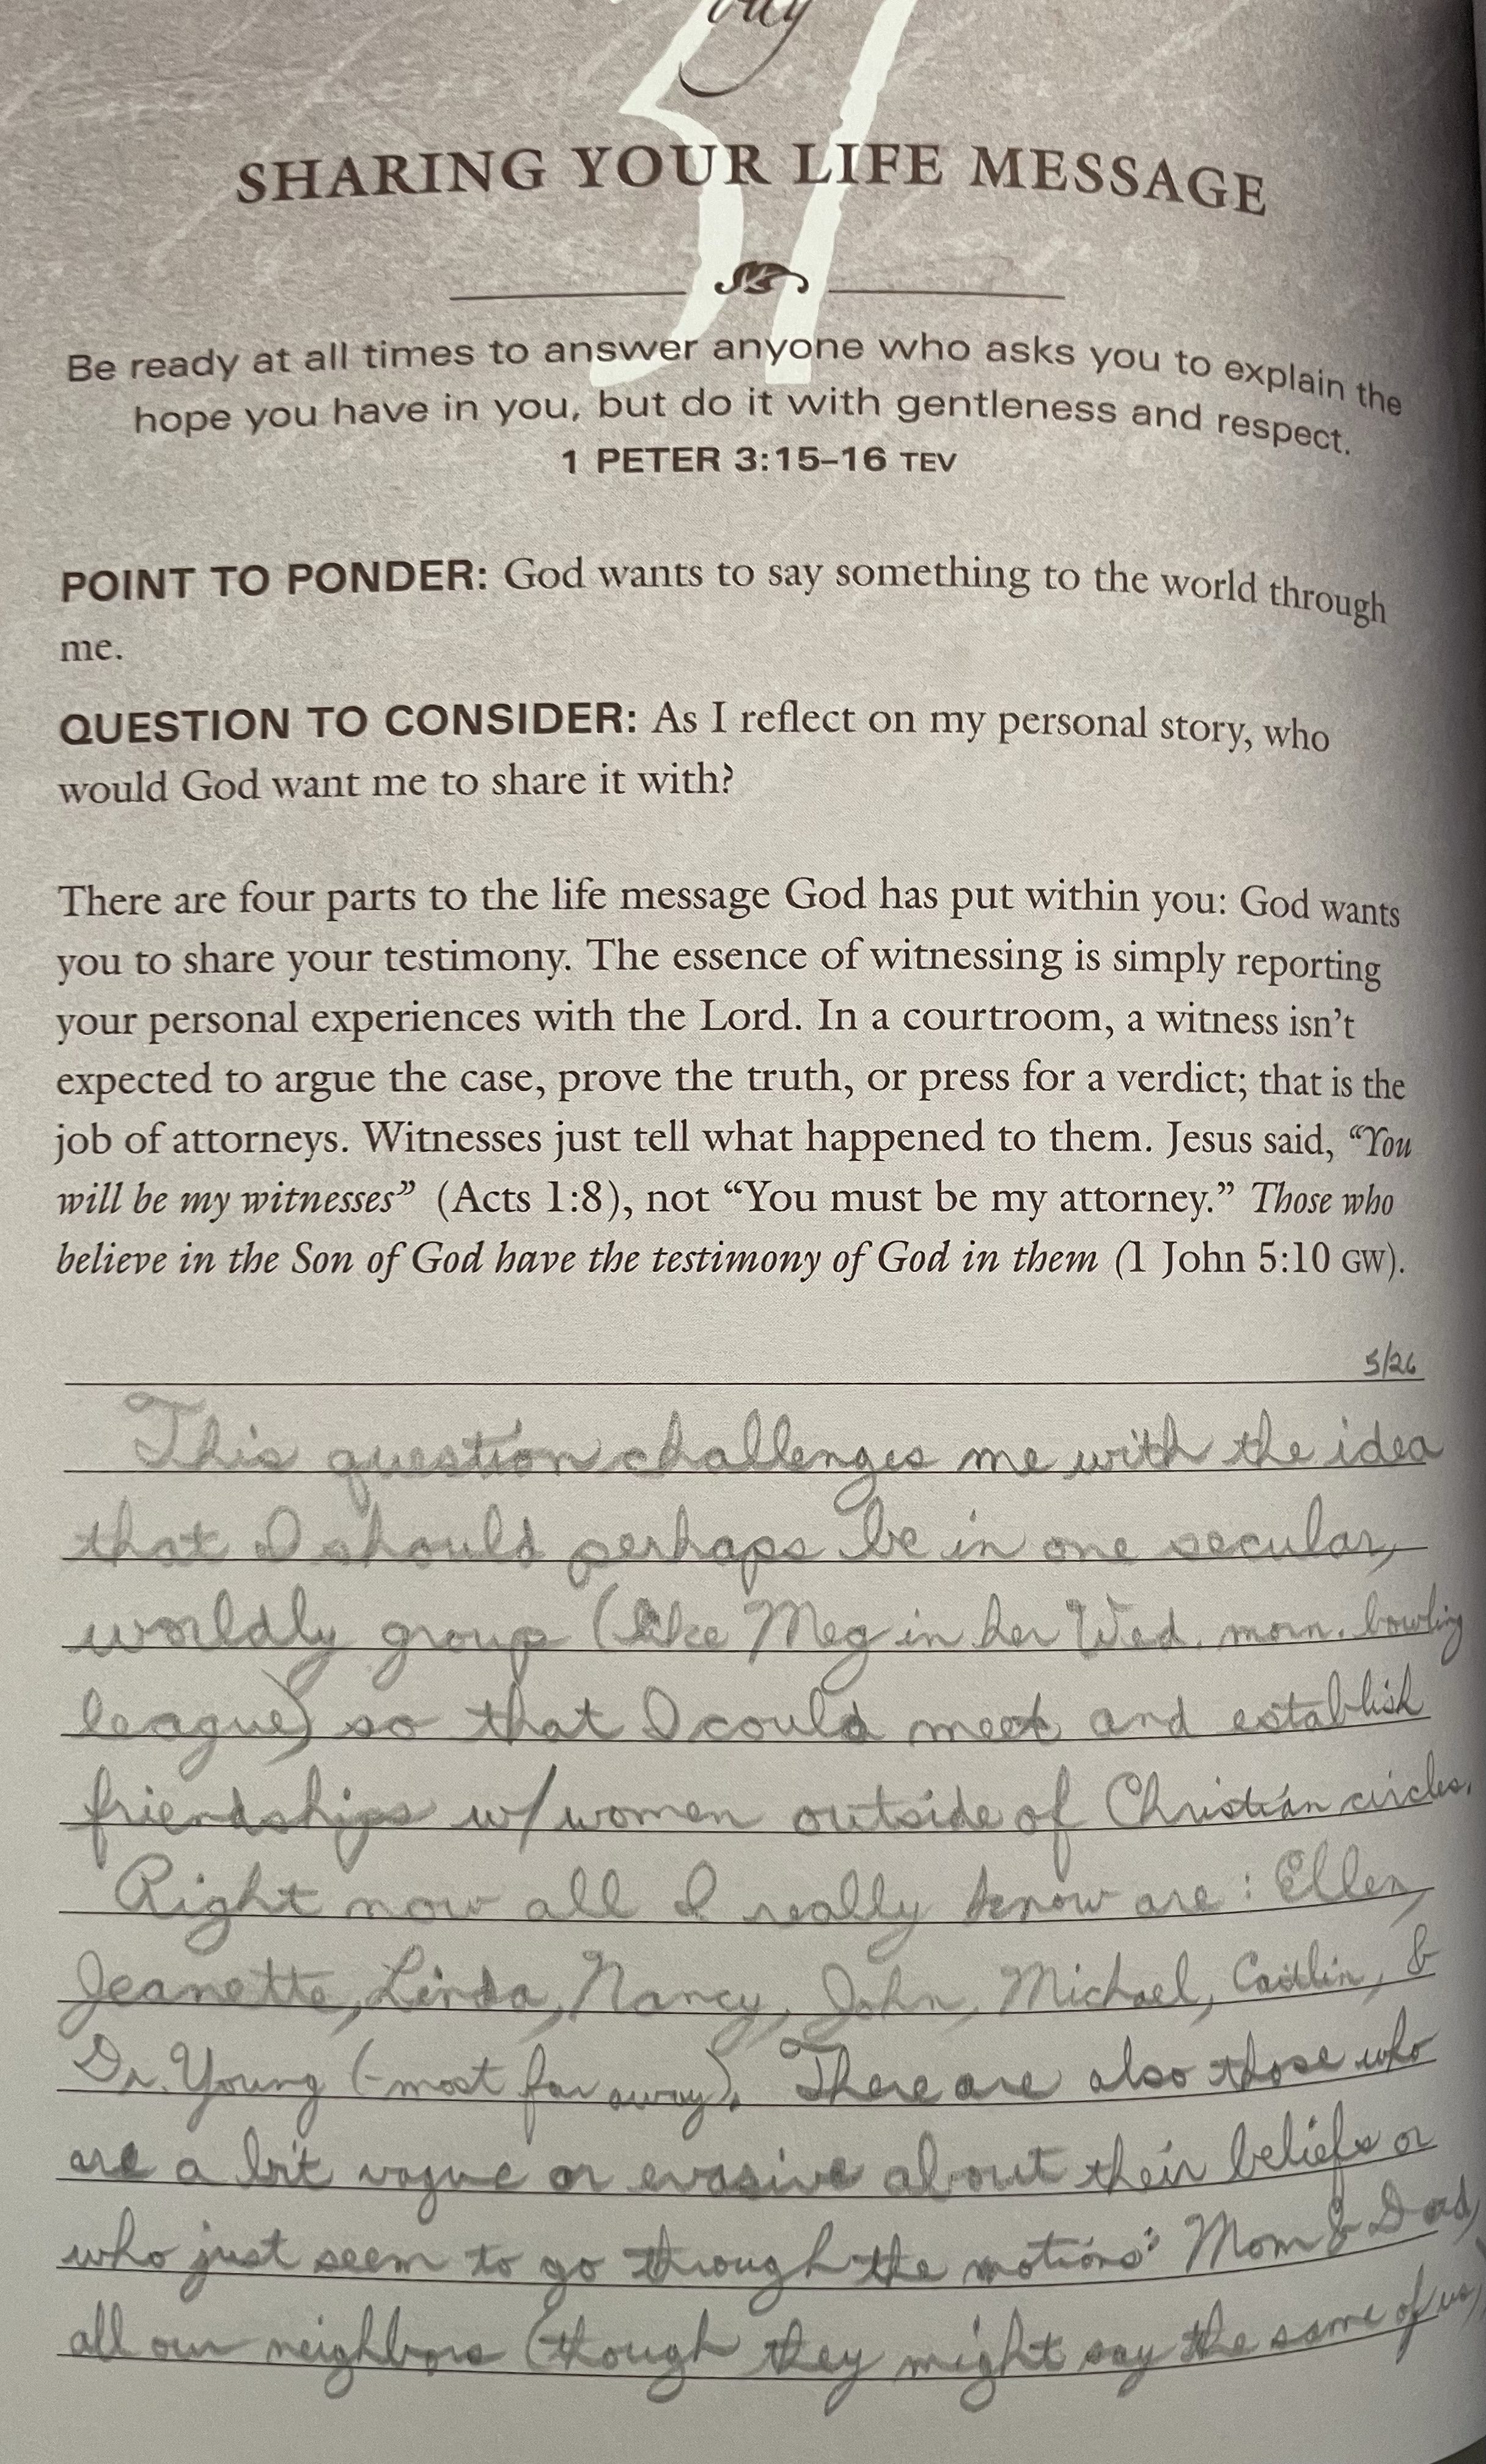 day
SHARING YOUR LIFE MESSAGE
Be ready at all times to answer anyone who asks you to explain the
hope you have in you, but do it with gentleness and respect.
1 PETER 3:15–16 TEV
POINT TO PONDER: God wants to say something to the world through
me.
QUESTION TO CONSIDER: As I reflect on my personal story, who
would God want me to share it with?
There are four parts to the life message God has put within you: God wants
you to share your testimony. The essence of witnessing is simply reporting
your personal experiences with the Lord. In a courtroom, a witness isn’t
expected to argue the case, prove the truth, or press for a verdict; that is the
job of attorneys. Witnesses just tell what happened to them. Jesus said, “You
will be my witnesses” (Acts 1:8), not “You must be my attorney.” Those who
believe in the Son of God have the testimony of God in them (1 John 5:10 GW).
5/26
This question challenges me with the idea
that I should perhaps be in one secular,
worldly group (like Meg in her Wed. morn. bowling
league) so that I could meet and establish
friendships w/women outside of Christian circles.
Right now all I really know are: Ellen,
Jeanette, Linda, Nancy, John, Michael, Caitlin, &
Dr. Young (-most far away). There are also those who
are a bit vague or evasive about their beliefs or
who just seem to go through the motions: Mom & Dad,
all our neighbors (though they might say the same of us),